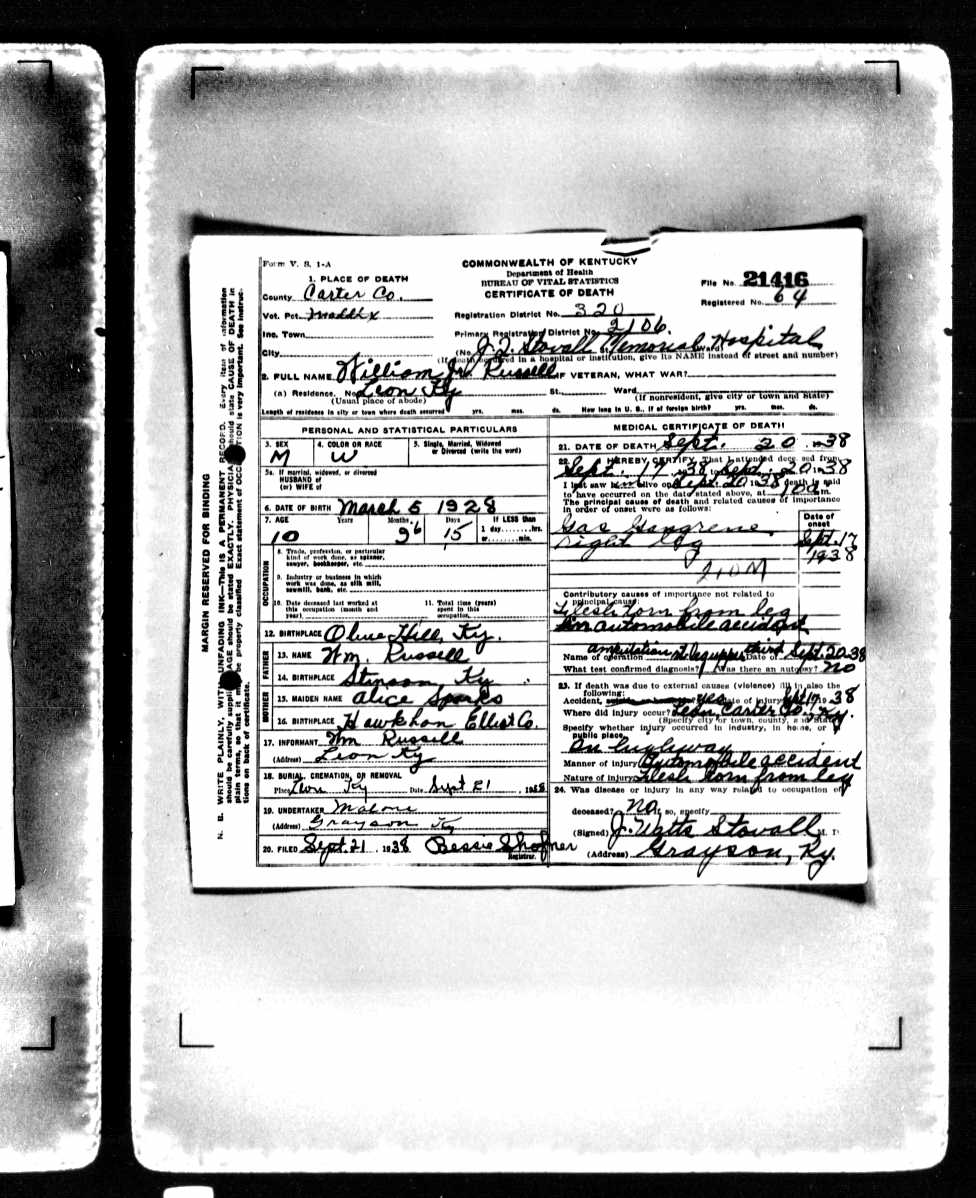 Form V. S. 1-A
COMMONWEALTH OF KENTUCKY
Department of Health
BUREAU OF VITAL STATISTICS
CERTIFICATE OF DEATH
File No. 21416
Registered No. 64
1. PLACE OF DEATH
County Carter Co.
Vot. Pct.
Inc. Town
City
Registration District No. 320
Primary Registration District No. 2106.
(No. Stovall Memorial Hospital Ward
(If death occurred in a hospital or institution, give its NAME instead of street and number)
2. FULL NAME William Jr. Russell IF VETERAN, WHAT WAR?
(a) Residence. No. Leon Ky St. Ward
(Usual place of abode) (If nonresident, give city or town and State)
Length of residence in city or town where death occurred yrs. mos. ds. How long in U. S., if of foreign birth? yrs. mos. ds.
PERSONAL AND STATISTICAL PARTICULARS
3. SEX 4. COLOR OR RACE 5. Single, Married, Widowed
or Divorced (write the word)
M W
5a. If married, widowed, or divorced
HUSBAND of
(or) WIFE of
6. DATE OF BIRTH March 5 1928
7. AGE Years Months Days If LESS than
1 day hrs.
or min.
10 6 15
OCCUPATION
8. Trade, profession, or particular
kind of work done, as spinner,
sawyer, bookkeeper, etc.
9. Industry or business in which
work was done, as silk mill,
sawmill, bank, etc.
10. Date deceased last worked at
this occupation (month and
year)
11. Total time (years)
spent in this
occupation
12. BIRTHPLACE Olive Hill, Ky.
FATHER
13. NAME Wm. Russell
14. BIRTHPLACE Stinson Ky
MOTHER
15. MAIDEN NAME Alice Sparks
16. BIRTHPLACE Elliott Co.
17. INFORMANT Wm Russell
(Address) Leon Ky
18. BURIAL, CREMATION, OR REMOVAL
Place Leon Ky Date Sept 21, 1938
19. UNDERTAKER Malone
(Address) Grayson Ky
20. FILED Sept. 21, 1938 Bessie Shofner
Registrar.
MEDICAL CERTIFICATE OF DEATH
21. DATE OF DEATH Sept. 20 1938
22. I HEREBY CERTIFY, That I attended deceased from
Sept. 17 1938 to Sept. 20 1938
I last saw him alive on Sept. 20 1938 death is said
to have occurred on the date stated above, at m.
The principal cause of death and related causes of importance
in order of onset were as follows:
Date of
onset
Gas Gangrene Sept. 17
right leg 1938
Contributory causes of importance not related to
principal cause:
Flesh torn from leg
in automobile accident
Name of operation amputation at upper third Date of Sept. 20 38
What test confirmed diagnosis? Was there an autopsy? No
23. If death was due to external causes (violence) fill in also the
following:
Accident, yes Date of injury Sept 17 1938
Where did injury occur? Leon Carter Co., Ky.
(Specify city or town, county, and State)
Specify whether injury occurred in industry, in home, or
public place.
On highway
Manner of injury Automobile accident
Nature of injury Flesh torn from leg
24. Was disease or injury in any way related to occupation of
deceased? No If so, specify
(Signed) J. Watts Stovall M. D.
(Address) Grayson, Ky.
MARGIN RESERVED FOR BINDING
N. B. WRITE PLAINLY, WITH UNFADING INK—This is A PERMANENT RECORD. Every item of information
should be carefully supplied. AGE should be stated EXACTLY. PHYSICIANS should state CAUSE OF DEATH in
plain terms, so that it may be properly classified. Exact statement of OCCUPATION is very important. See instruc-
tions on back of certificate.